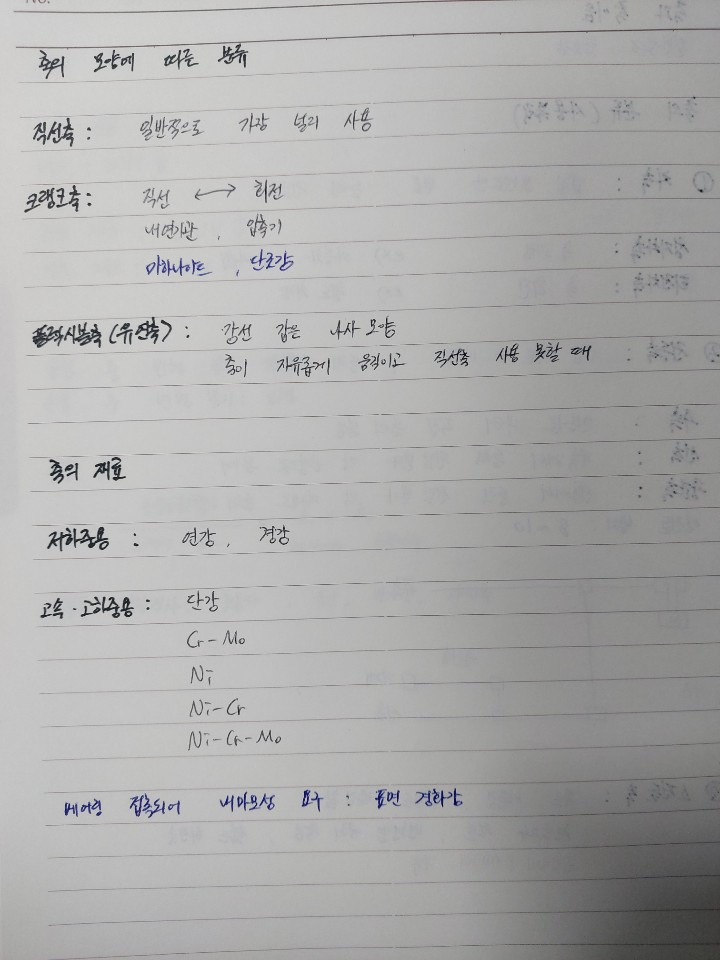 No.
축의 모양에 따른 분류
직선축 : 일반적으로 가장 널리 사용
크랭크축 : 직선 ↔ 회전
내연기관 , 압축기
미하나이트 , 단조강
플렉시블축 (유연축) : 강선 감은 나사 모양
축이 자유롭게 움직이고 직선축 사용 못할 때
축의 재료
저하중용 : 연강 , 경강
고속 · 고하중용 : 단강
Cr - Mo
Ni
Ni - Cr
Ni - Cr - Mo
베어링 접촉되어 내마모성 요구 : 표면 경화강